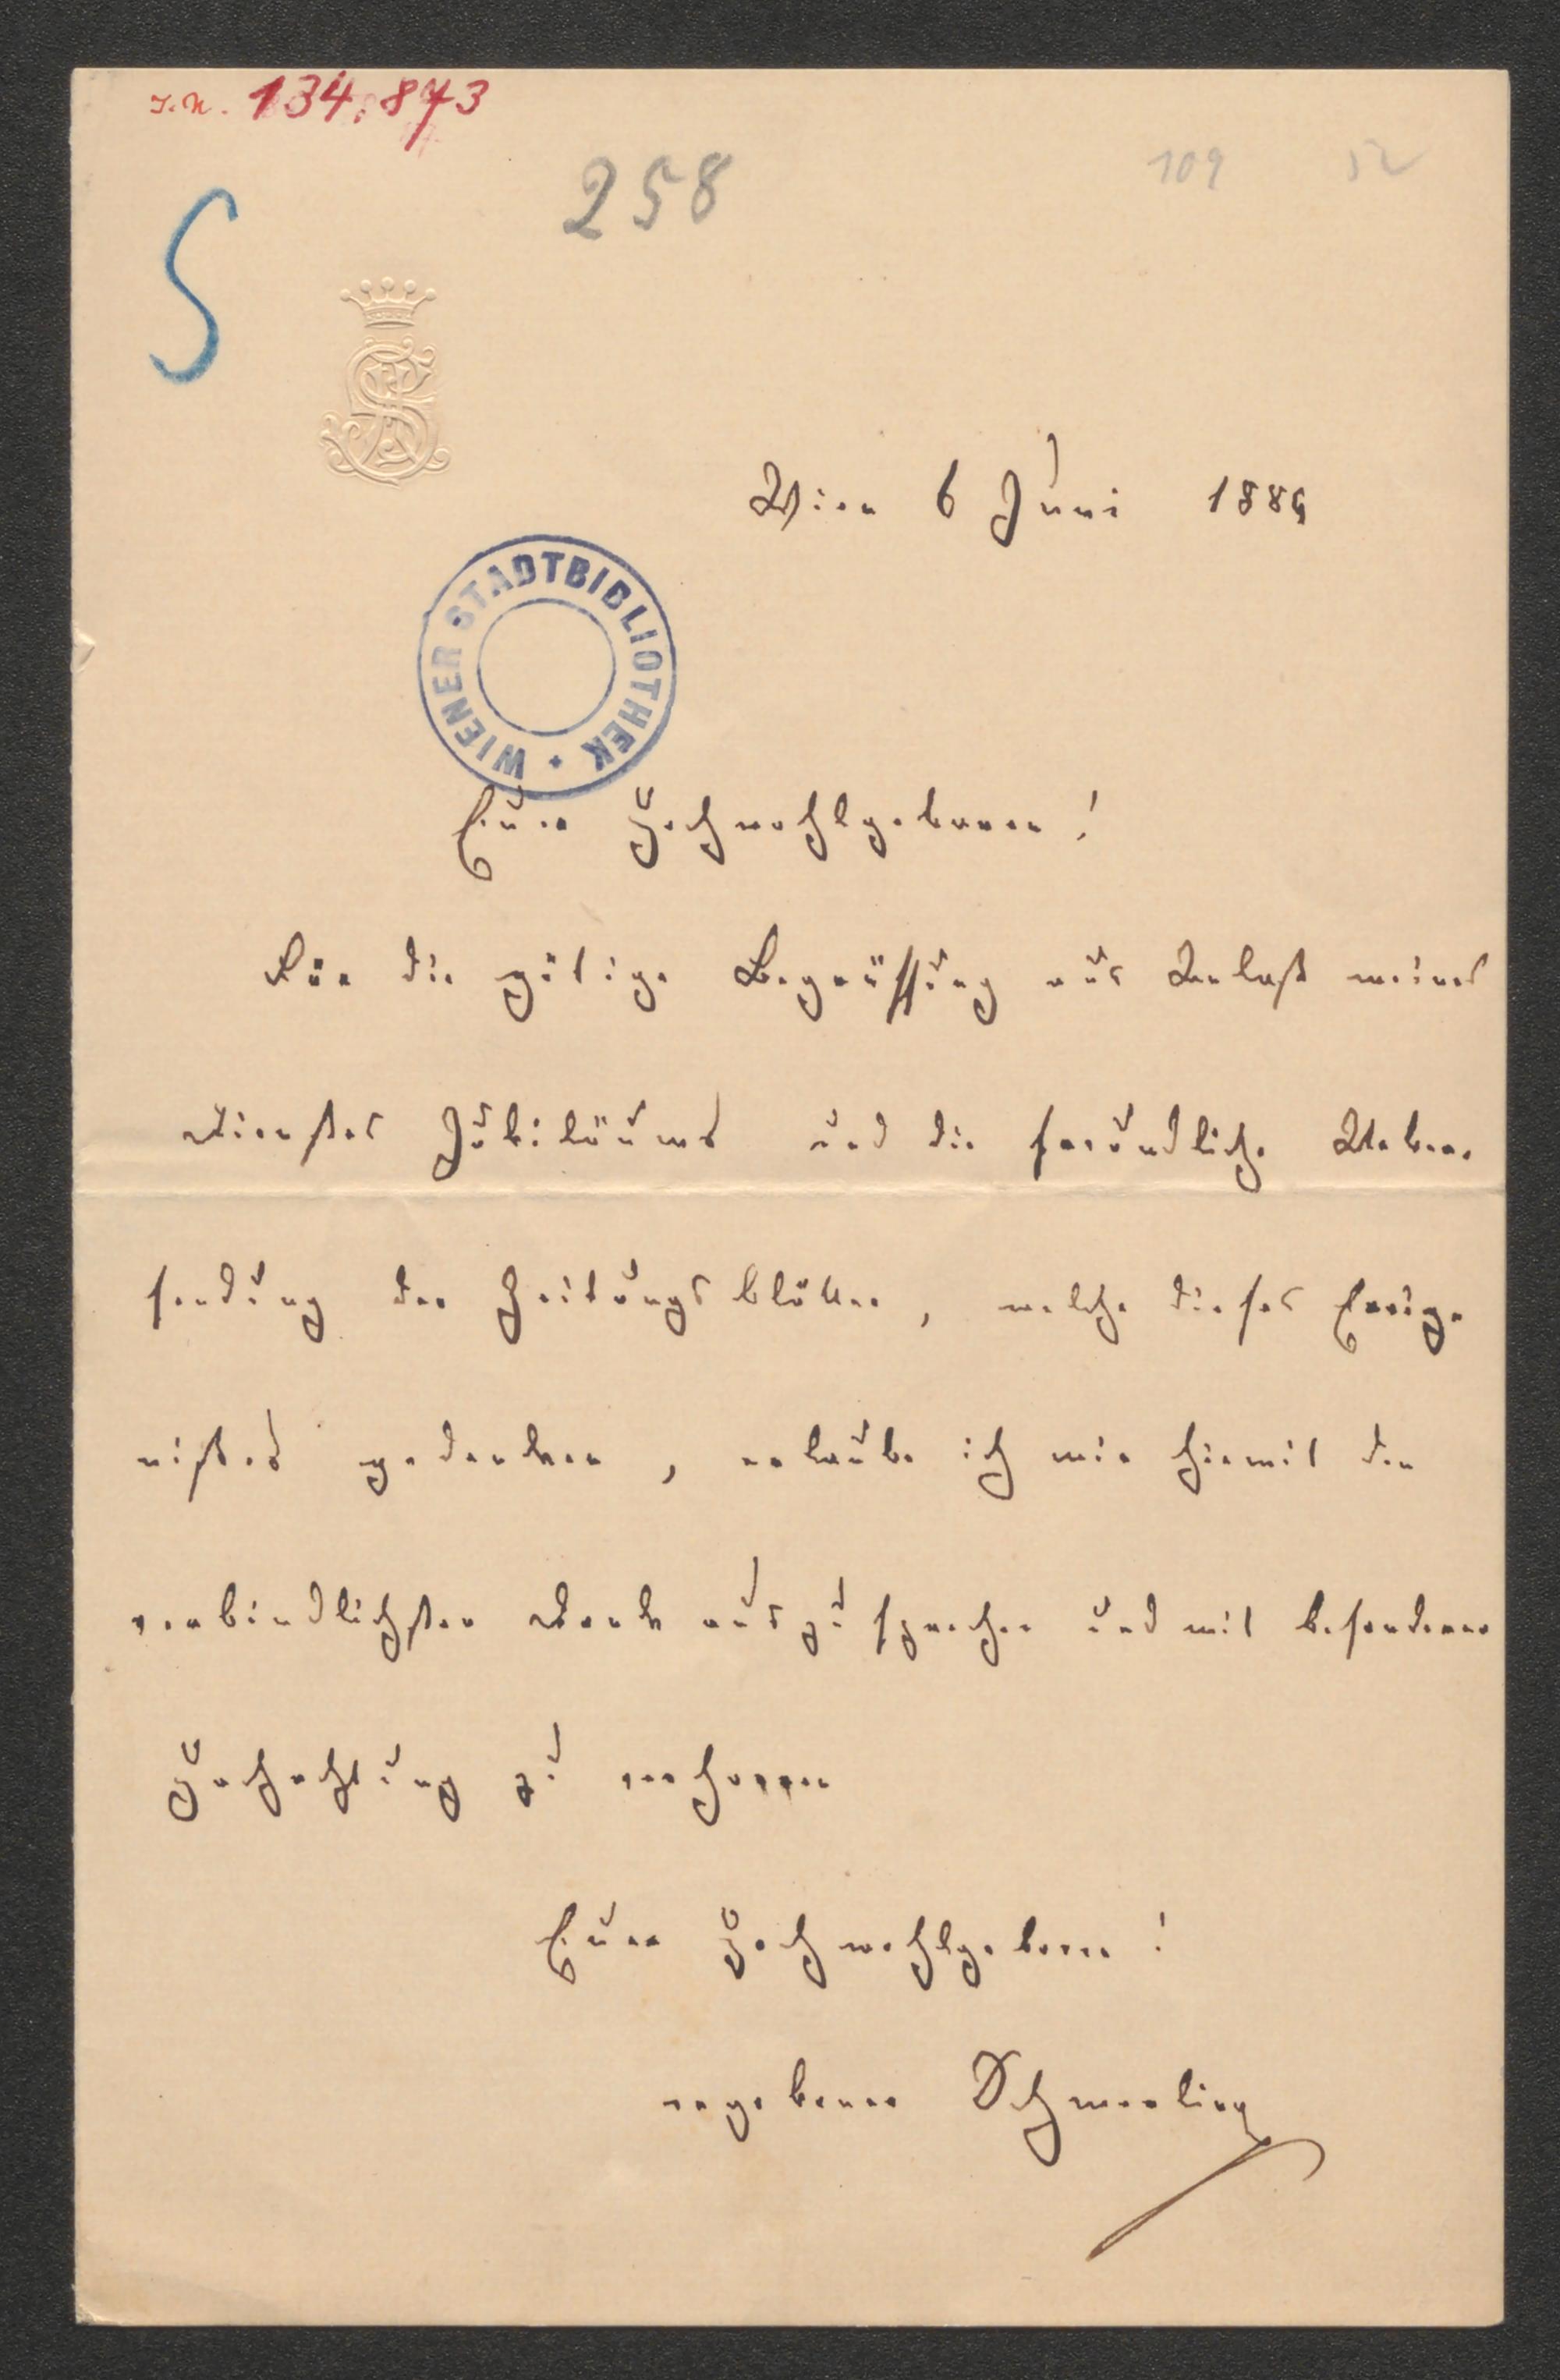 I.N. 134.873
258
109 52
S
Wien 6 Juni 1884
WIENER STADTBIBLIOTHEK
Euer Hochwohlgeboren!
Für die gütige Begrüssung aus Anlaß meines
Dienstes Jubiläums und die freundliche Ueber-
sendung der Zeitungsblätter, welche dieses Ereig-
nißes gedenken, erlaube ich mir hiemit den
verbindlichsten Dank auszusprechen und mit besonderer
Hochachtung zu verharren
Euer Hochwohlgeboren!
ergebener Schmerling